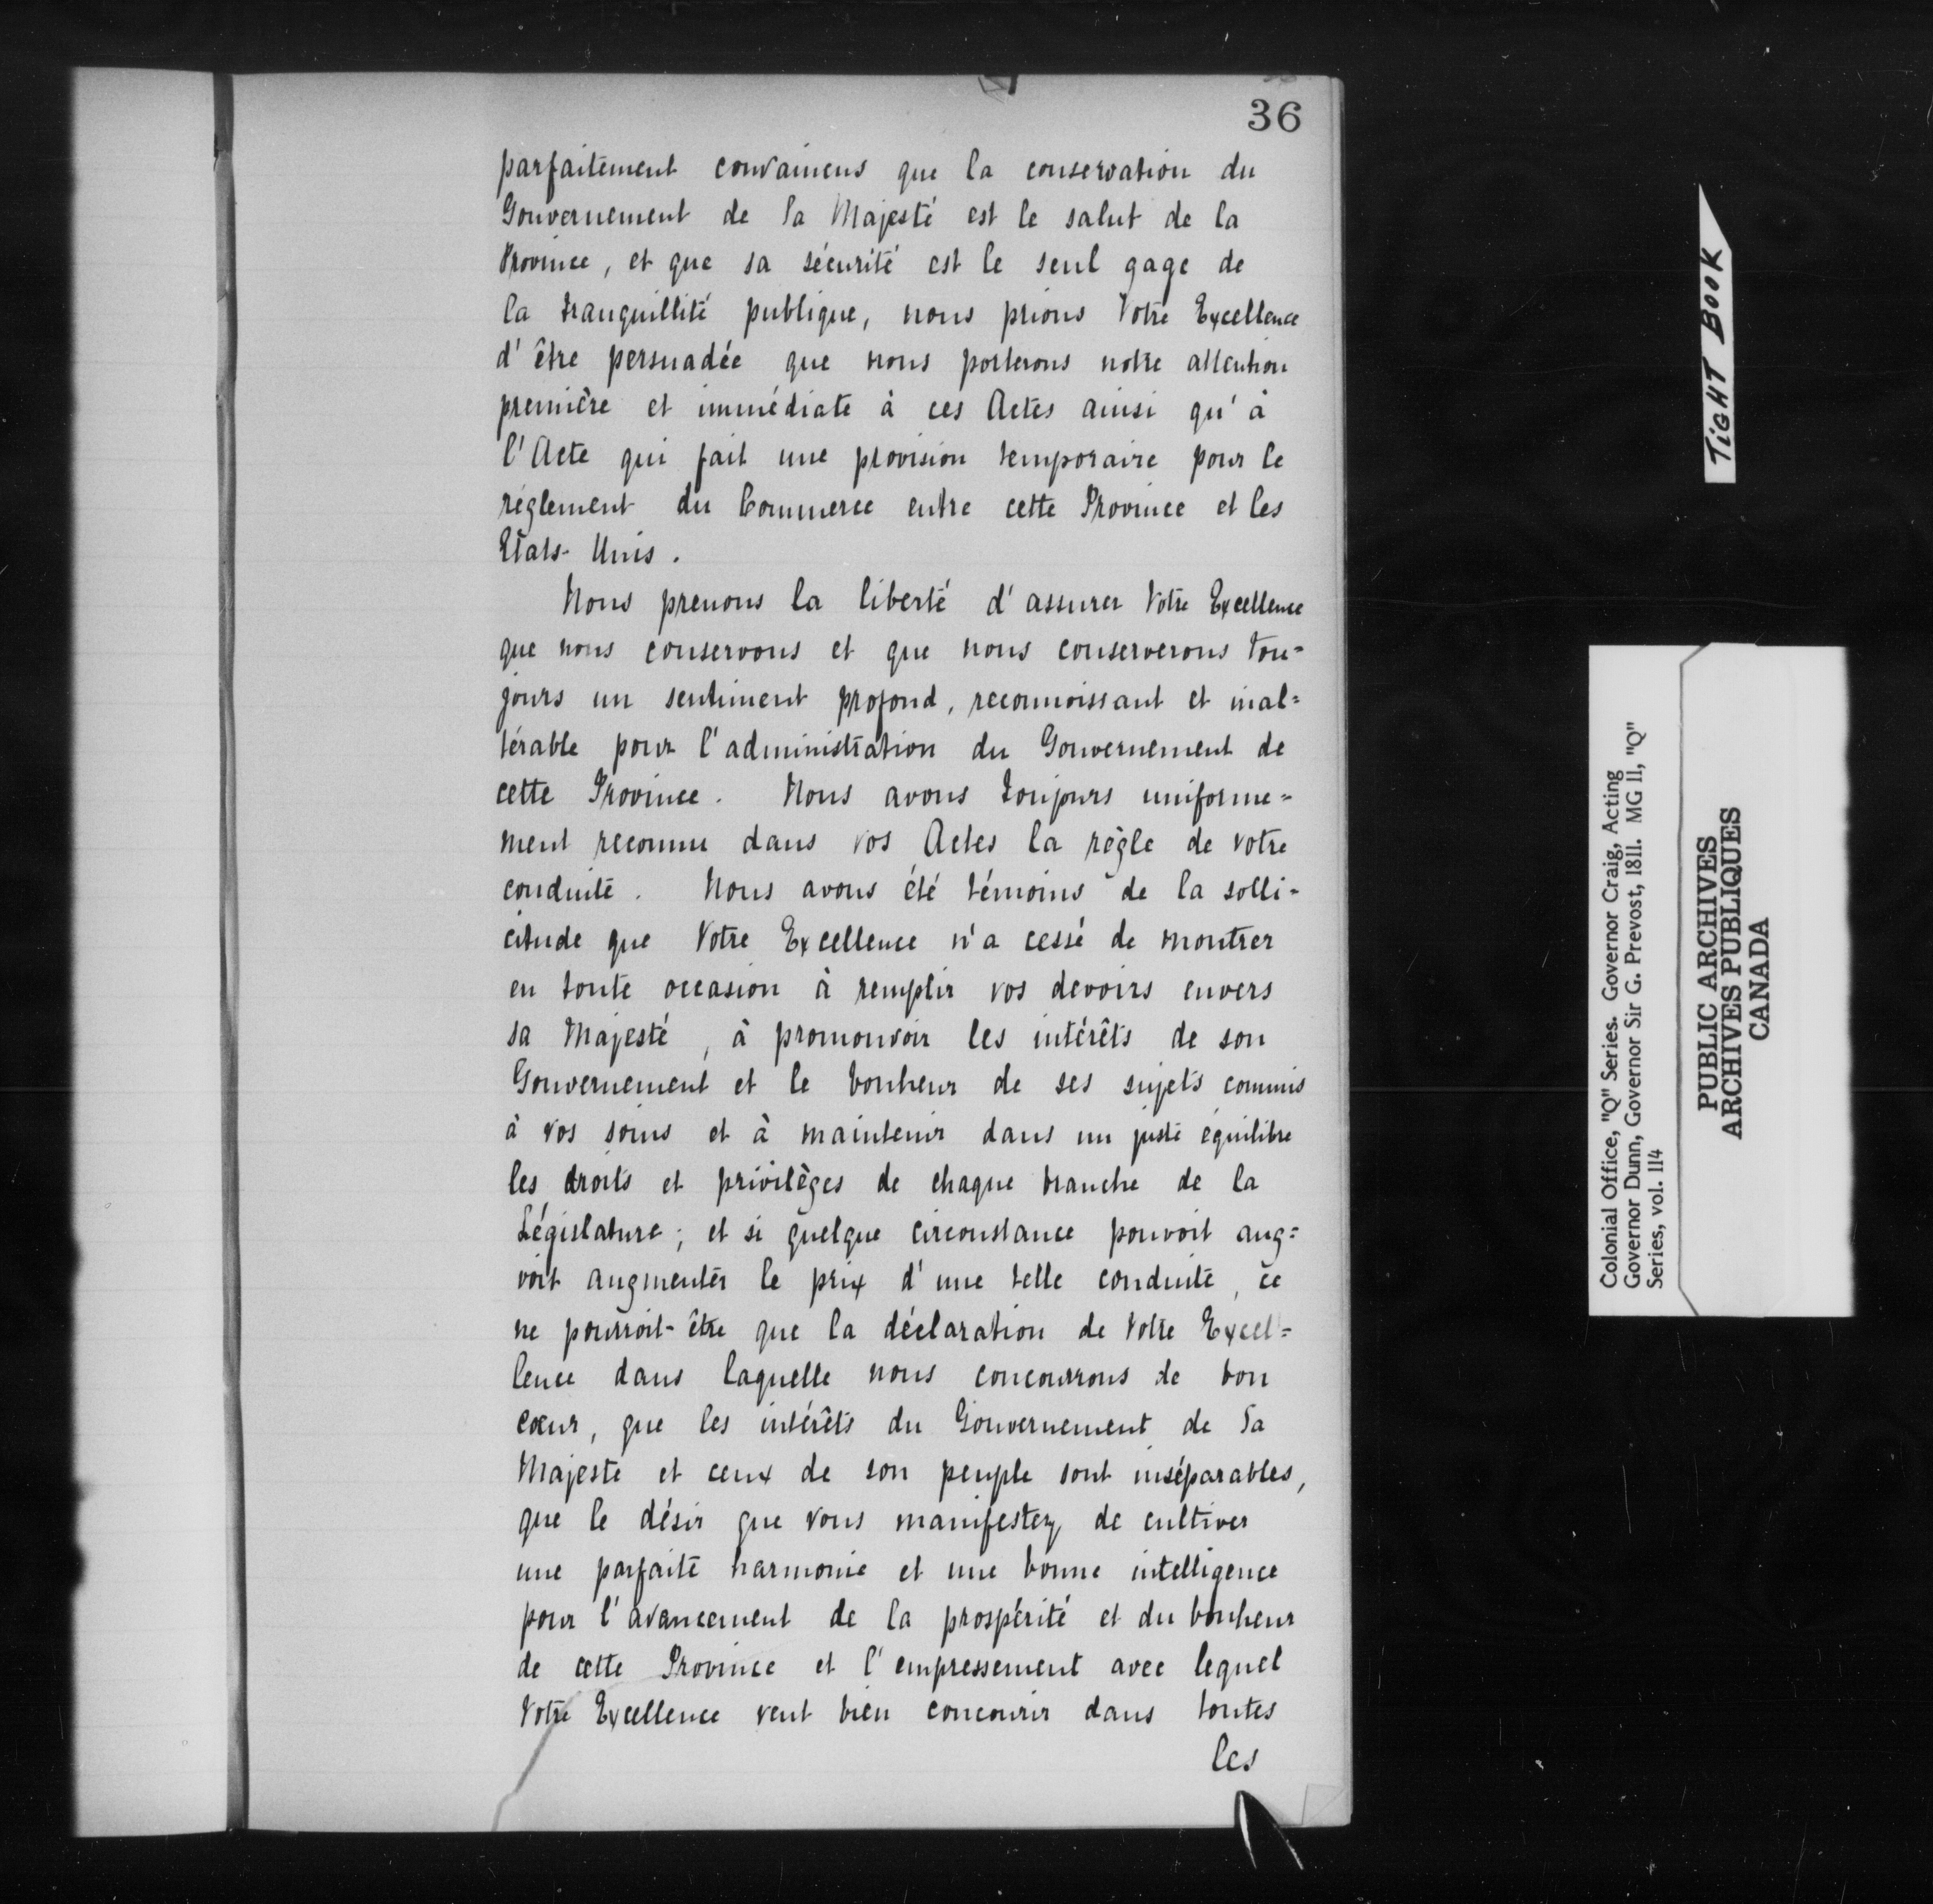 36
parfaitement convaincus que la conservation du
Gouvernement de Sa Majesté est le salut de la
Province, et que sa sécurité est le seul gage de
la tranquillité publique, nous prions Votre Excellence
d'être persuadée que nous porterons notre attention
première et immédiate à ces Actes ainsi qu'à
l'Acte qui fait une provision temporaire pour le
réglement du Commerce entre cette Province et les
Etats-Unis.
Nous prenons la liberté d'assurer Votre Excellence
que nous conservons et que nous conserverons tou=
jours un sentiment profond, reconnoissant et inal=
térable pour l'administration du Gouvernement de
cette Province. Nous avons toujours uniforme=
ment reconnu dans vos Actes la règle de votre
conduite. Nous avons été témoins de la solli=
citude que Votre Excellence n'a cessé de montrer
en toute occasion à remplir vos devoirs envers
sa Majesté, à promouvoir les intérêts de son
Gouvernement et le bonheur de ses sujets commis
à vos soins et à maintenir dans un juste équilibre
les droits et privilèges de chaque branche de la
Législature; et si quelque circonstance pouvoit aug=
voit augmenter le prix d'une telle conduite, ce
ne pourroit-être que la déclaration de Votre Excel=
lence dans laquelle nous concourrons de bon
cœur, que les intérêts du Gouvernement de Sa
Majesté et ceux de son peuple sont inséparables,
que le désir que vous manifestez de cultiver
une parfaite harmonie et une bonne intelligence
pour l'avancement de la prospérité et du bonheur
de cette Province et l'empressement avec lequel
Votre Excellence veut bien concourir dans toutes
les
TIGHT BOOK
Colonial Office, "Q" Series. Governor Craig, Acting
Governor Dunn, Governor Sir G. Prevost, 1811. MG 11, "Q"
Series, vol. 114
PUBLIC ARCHIVES
ARCHIVES PUBLIQUES
CANADA